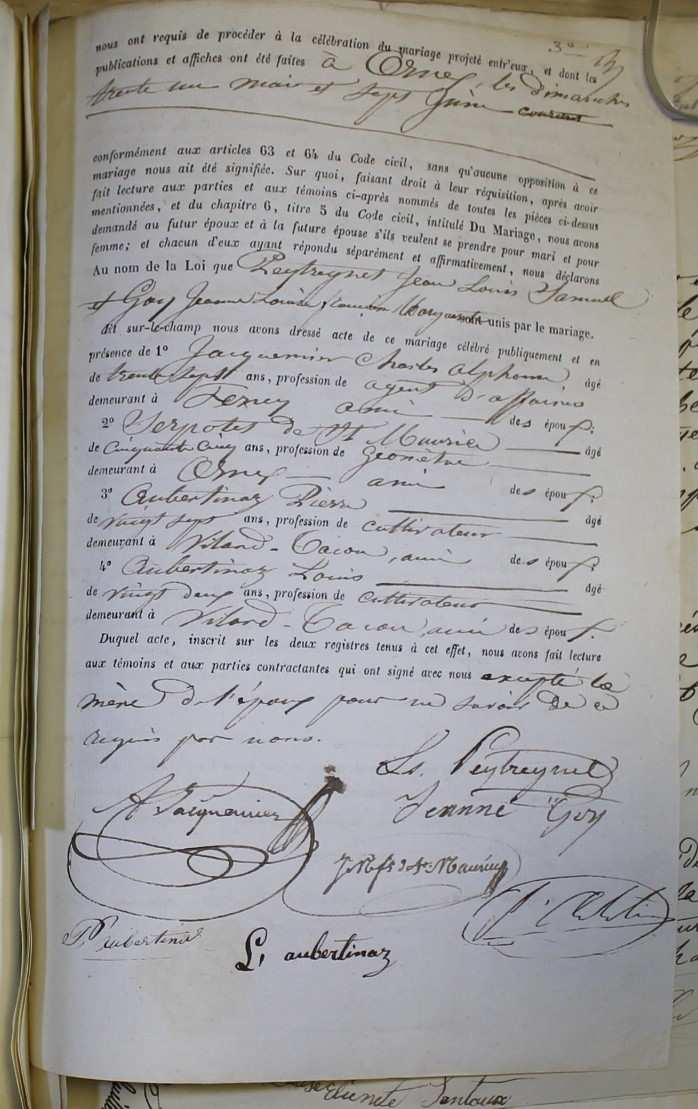 nous ont requis de procéder à la célébration du mariage projeté entr'eux, et dont les
publications et affiches ont été faites à Ornex, les dimanches
trente un mai et sept Juin courant
conformément aux articles 63 et 64 du Code civil, sans qu'aucune opposition à ce
mariage nous ait été signifiée. Sur quoi, faisant droit à leur réquisition, après avoir
fait lecture aux parties et aux témoins ci-après nommés de toutes les pièces ci-dessus
mentionnées, et du chapitre 6, titre 5 du Code civil, intitulé Du Mariage, nous avons
demandé au futur époux et à la future épouse s'ils veulent se prendre pour mari et pour
femme; et chacun d'eux ayant répondu séparément et affirmativement, nous déclarons
Au nom de la Loi que Peytregnet Jean Louis Samuel
et Goy Jeanne Louise unis par le mariage.
Et sur-le-champ nous avons dressé acte de ce mariage célébré publiquement et en
présence de 1º Jacquemier Charles Alphonse âgé
de trente sept ans, profession de agent d'affaires
demeurant à Ferney ami des épou
2º Serpotet de St Maurice âgé
de Cinquante Cinq ans, profession de Géomètre
demeurant à Ornex ami des épou
3º Aubertinaz Pierre âgé
de vingt sept ans, profession de cultivateur
demeurant à Vilard-Tacon, ami des épou
4º Aubertinaz Louis âgé
de vingt deux ans, profession de cultivateur
demeurant à Vilard-Tacon, ami des épou
Duquel acte, inscrit sur les deux registres tenus à cet effet, nous avons fait lecture
aux témoins et aux parties contractantes qui ont signé avec nous excepté la
mère de l'époux pour ne savoir de ce
requis par nous.
Ls. Peytregnet
A Jacquemier Jeanne Goy
St Maurice
P. aubertinaz
L, aubertinaz